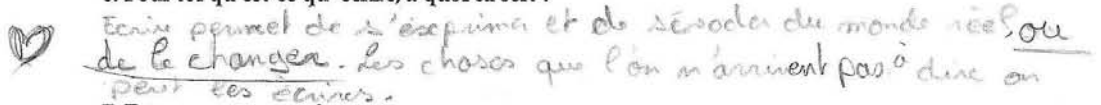 Ecrire permet de s'éxprimer et de sévader du monde réel, ou
de le changer. Les choses que l'on n'arrivent pas à dire on
peut les écrires.